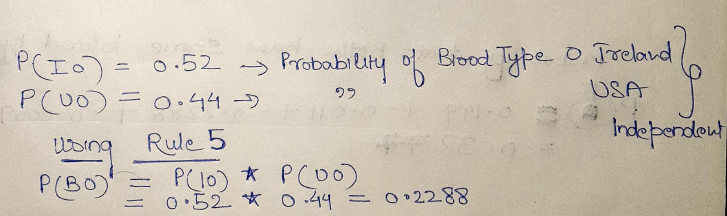 P(Io) = 0.52 → Probability of Blood Type O Ireland
P(UO) = 0.44 → " USA
Independent
Using Rule 5
P(BO) = P(IO) * P(UO)
= 0.52 * 0.44 = 0.2288